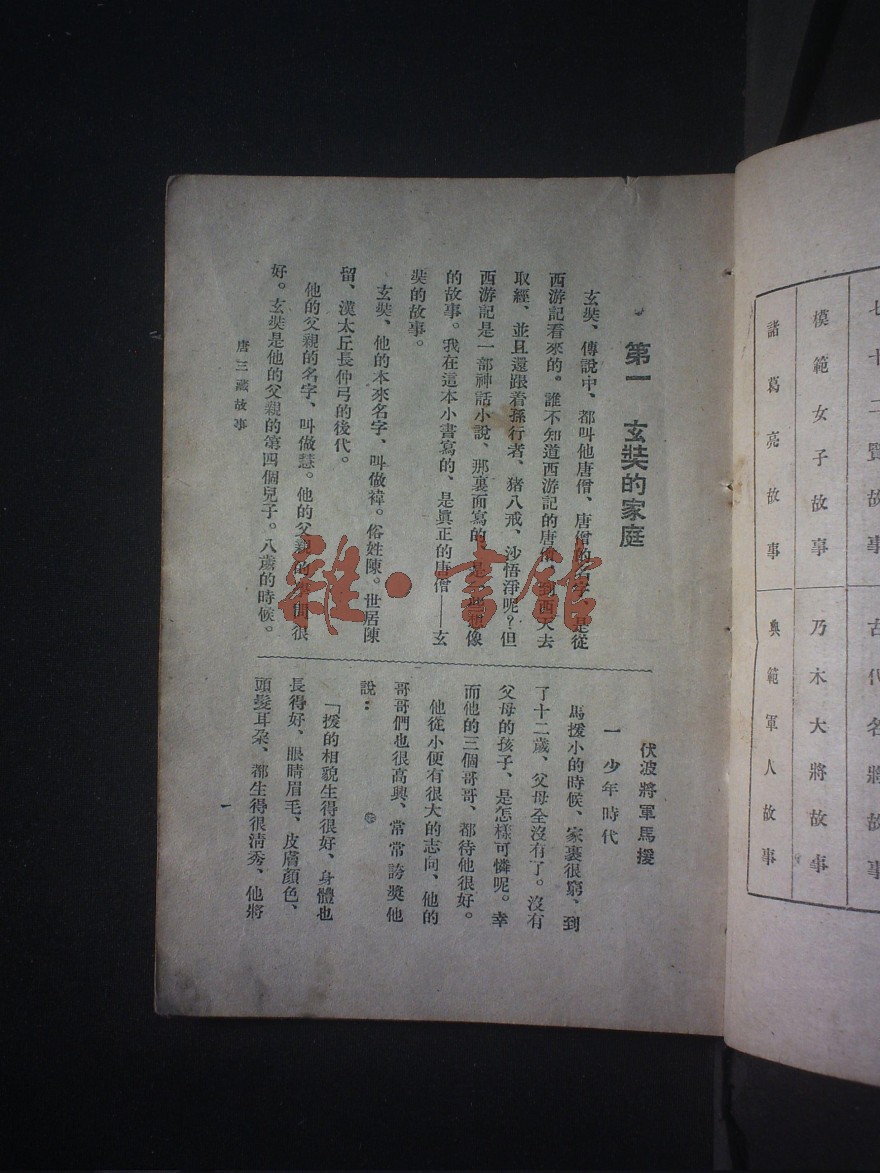 第一　玄奘的家庭
玄奘、傳說中、都叫他唐僧、唐僧的名字、是從
西游記看來的。誰不知道西游記的唐僧、到西天去
取經、並且還跟着孫行者、猪八戒、沙悟淨呢？但
西游記是一部神話小說、那裏面寫的、是一些想像
的故事。我在這本小書寫的、是眞正的唐僧——玄
奘的故事。
玄奘、他的本來名字、叫做褘。俗姓陳。世居陳
留、漢太丘長仲弓的後代。
他的父親的名字、叫做慧。他的父親的學問很
好。玄奘是他的父親的第四個兒子。八歲的時候。
唐三藏故事
伏波將軍馬援
一　少年時代
馬援小的時候、家裏很窮、到
了十二歲、父母全沒有了。沒有
父母的孩子、是怎樣可憐呢。幸
而他的三個哥哥、都待他很好。
他從小便有很大的志向、他的
哥哥們也很高興、常常誇奬他
說：
「援的相貌生得很好、身體也
長得好、眼睛眉毛、皮膚顏色、
頭髮耳朶、都生得很淸秀、他將
一
雜·書館
七十二賢故事
古代名將故事
模範女子故事
乃木大將故事
諸葛亮故事
典範軍人故事